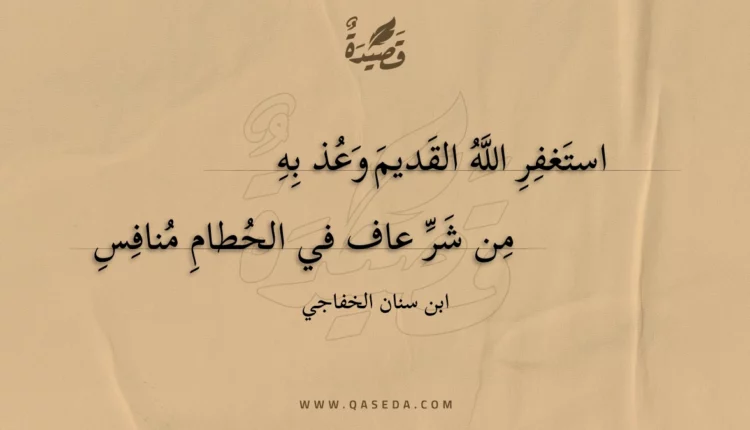 قَصِيدَةٌ
استَغفِرِ اللَّهُ القَديمَ وَعُذ بِهِ
مِن شَرِّ عاف في الحُطامِ مُنافِسِ
ابن سنان الخفاجي
WWW.QASEDA.COM